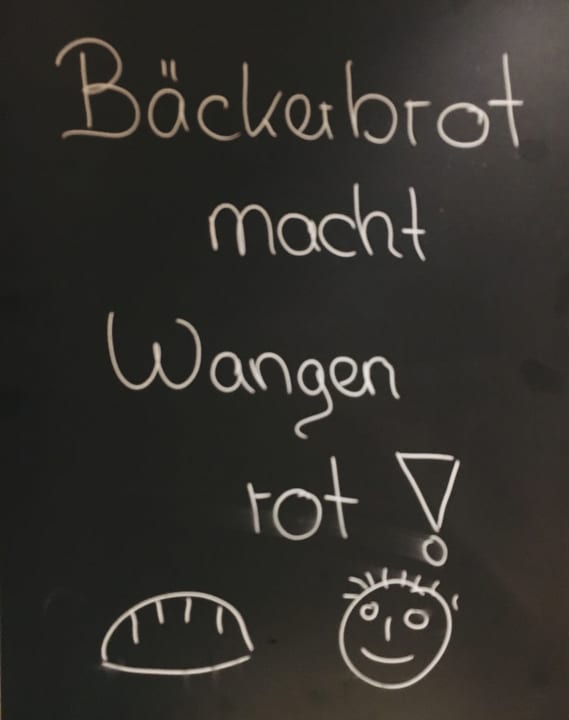 Bäckerbrot
macht
Wangen
rot!